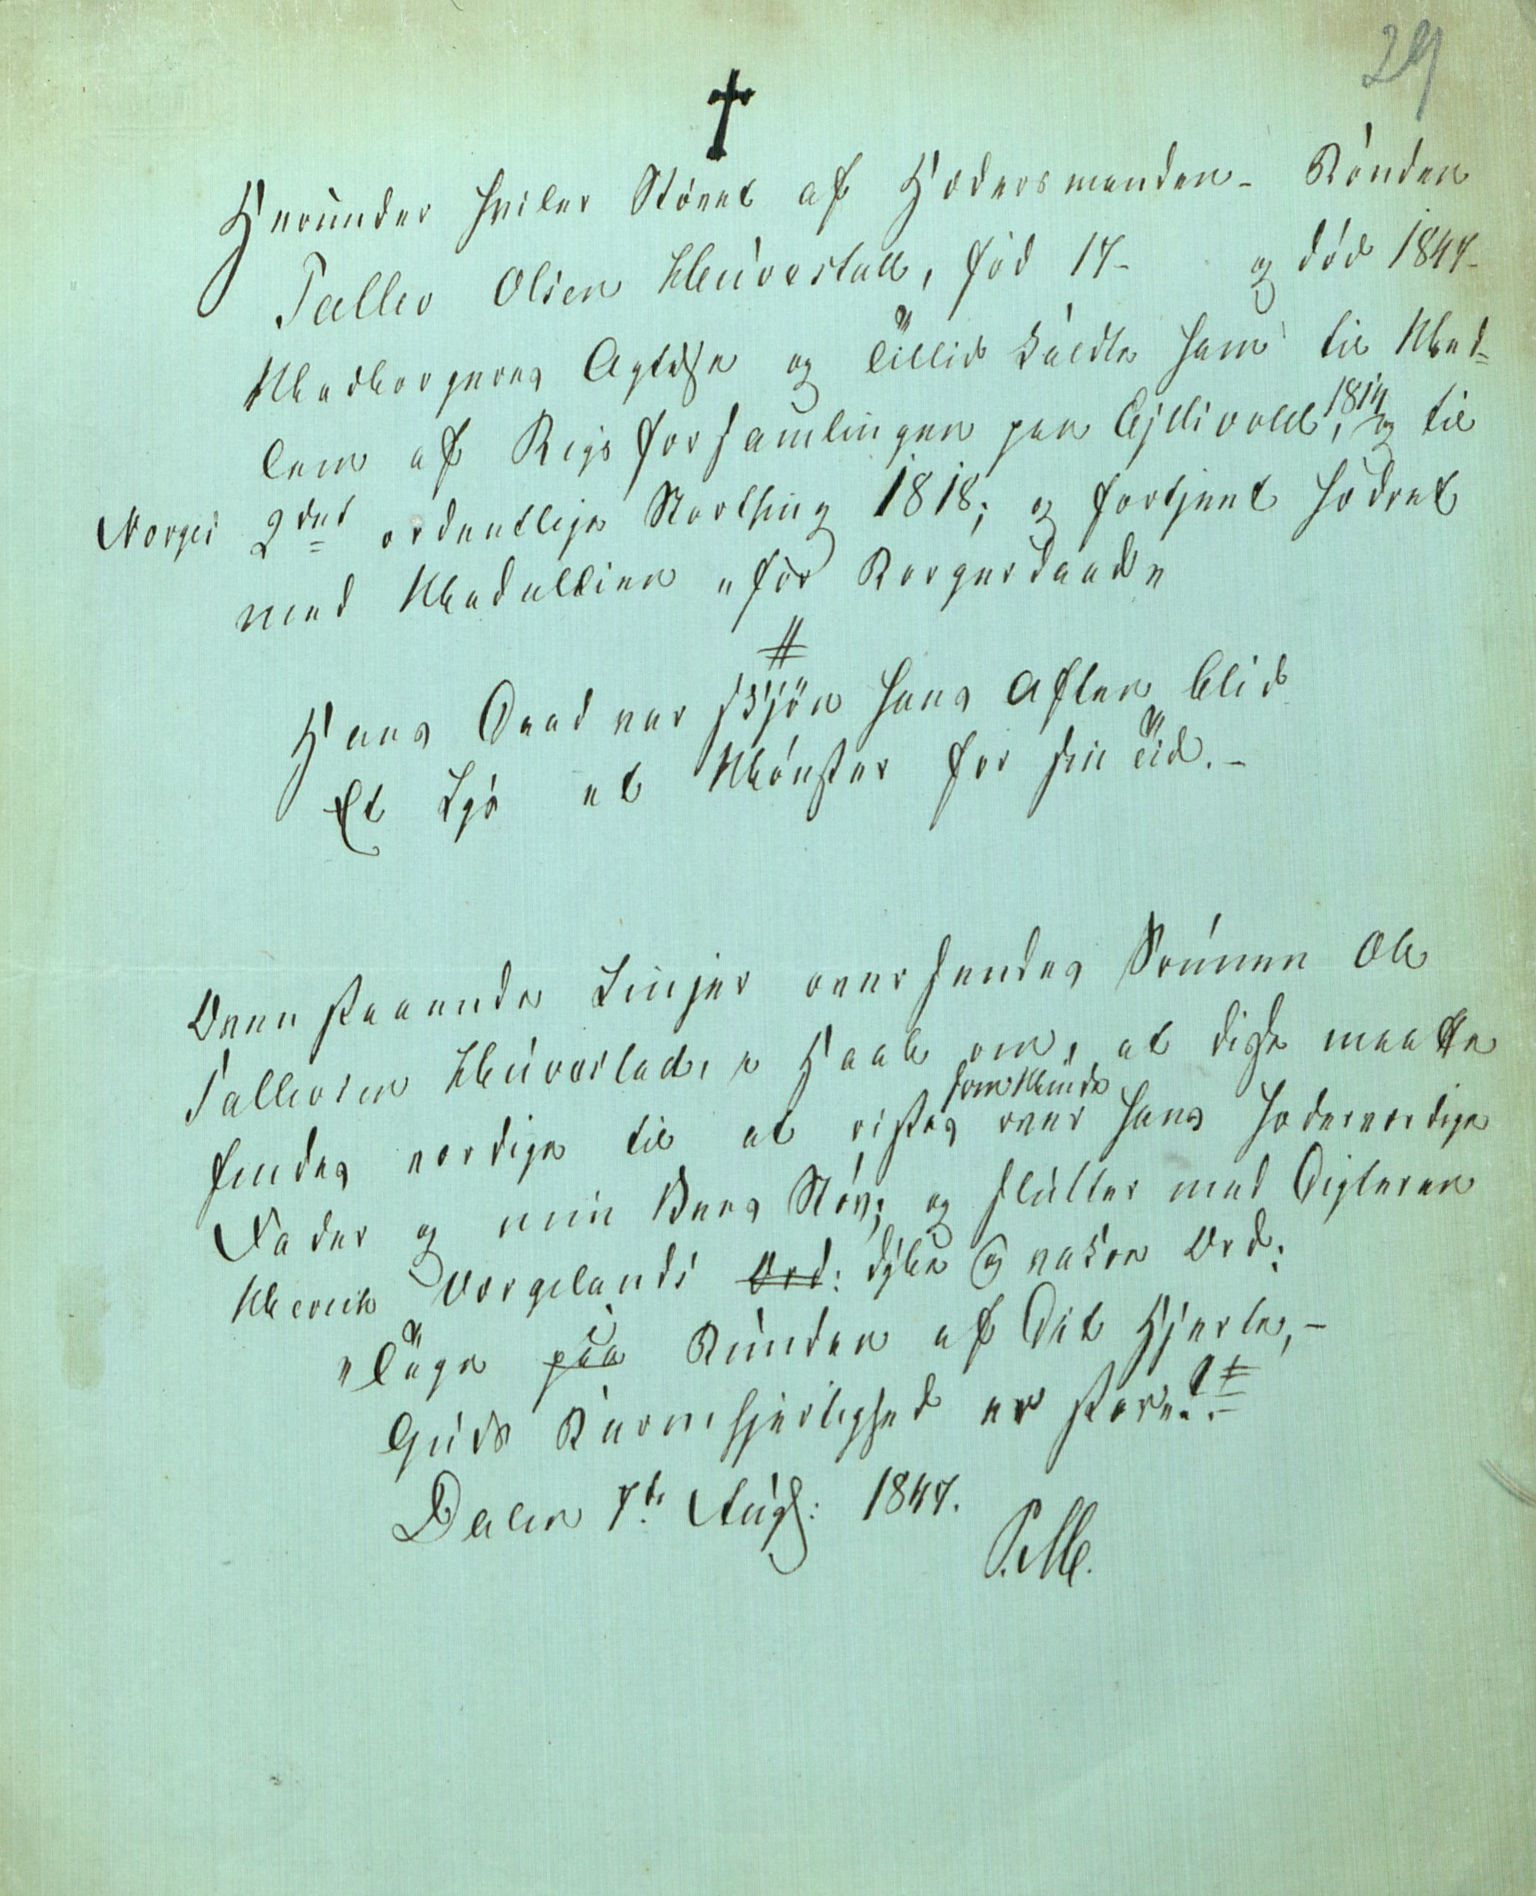 29
†
Herunder hviler Støvet af Hædersmanden - Bonden
Tallev Olsen Huvestad, fød 17- og død 1847-
Medborgeres Agtelse og Tillid kaldte ham til Med-
lem af Rigsforsamlingen paa Ejdsvold, 1814, og til
Norges 2det ordentlige Storthing 1818; og fortjent hædret
med Medallien „for Borgerdaad„
Hans Daad var skjøn hans Aften blid
Et Lys et Mønster for sin Tid. -
Ovenstaaende Linjer oversendes Sønnen Ole
Tallevsen Huvestad, i Haab om, at disse maatte
findes værdige til at ristes som Minde over hans hæderværdige
Fader og min Vens Støv; og slutter med Digteren
Henrik Vergelands Ord: dybe og vakre Ord:
„Tage paa i Bunden af Dit Hjerte, -
Guds Barmhjertighed er store."
Dalen 7de Augs: 1847.
P.M.